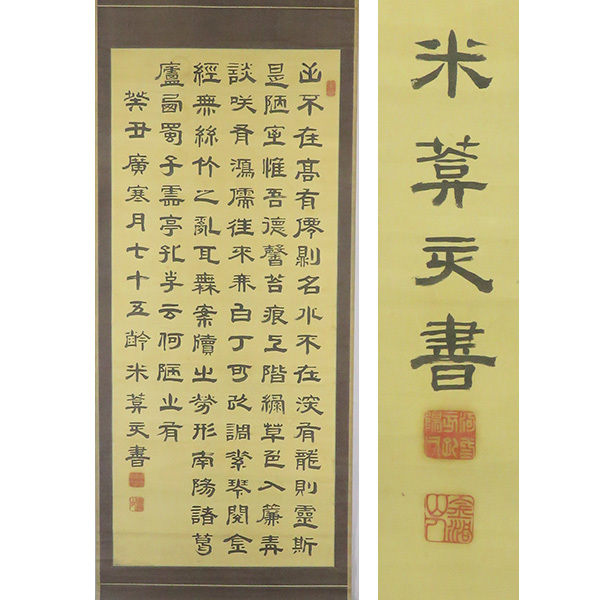 山不在高有僊則名水不在深有龍則靈斯
是陋室惟吾德馨苔痕上階綠草色入簾青
談笑有鴻儒往來無白丁可以調素琴閱金
經無絲竹之亂耳無案牘之勞形南陽諸葛
廬西蜀子雲亭孔子云何陋之有
癸丑廣寒月七十五齡米葊亥書
米葊亥書